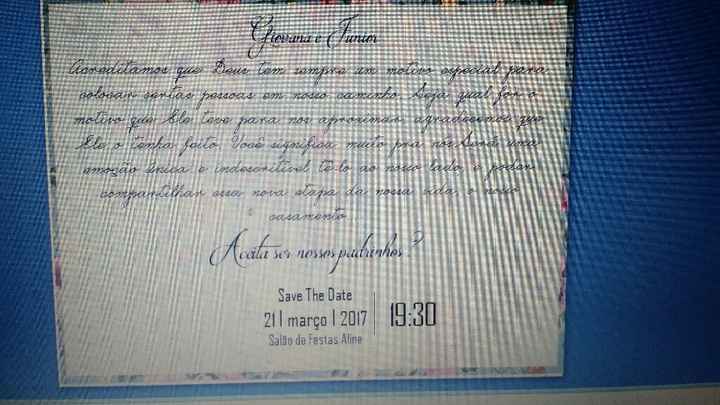 Giovana e Junior
Acreditamos que Deus tem sempre um motivo especial para
colocar certas pessoas em nosso caminho. Seja qual for o
motivo que Ele teve para nos aproximar, agradecemos que
Ele o tenha feito. Você significa muito pra nós. Será uma
emoção única e indescritível tê-lo ao nosso lado, e poder
compartilhar essa nova etapa da nossa vida, o nosso
casamento.
Aceita ser nossos padrinhos?
Save The Date
21 | março | 2017
19:30
Salão de Festas Aline